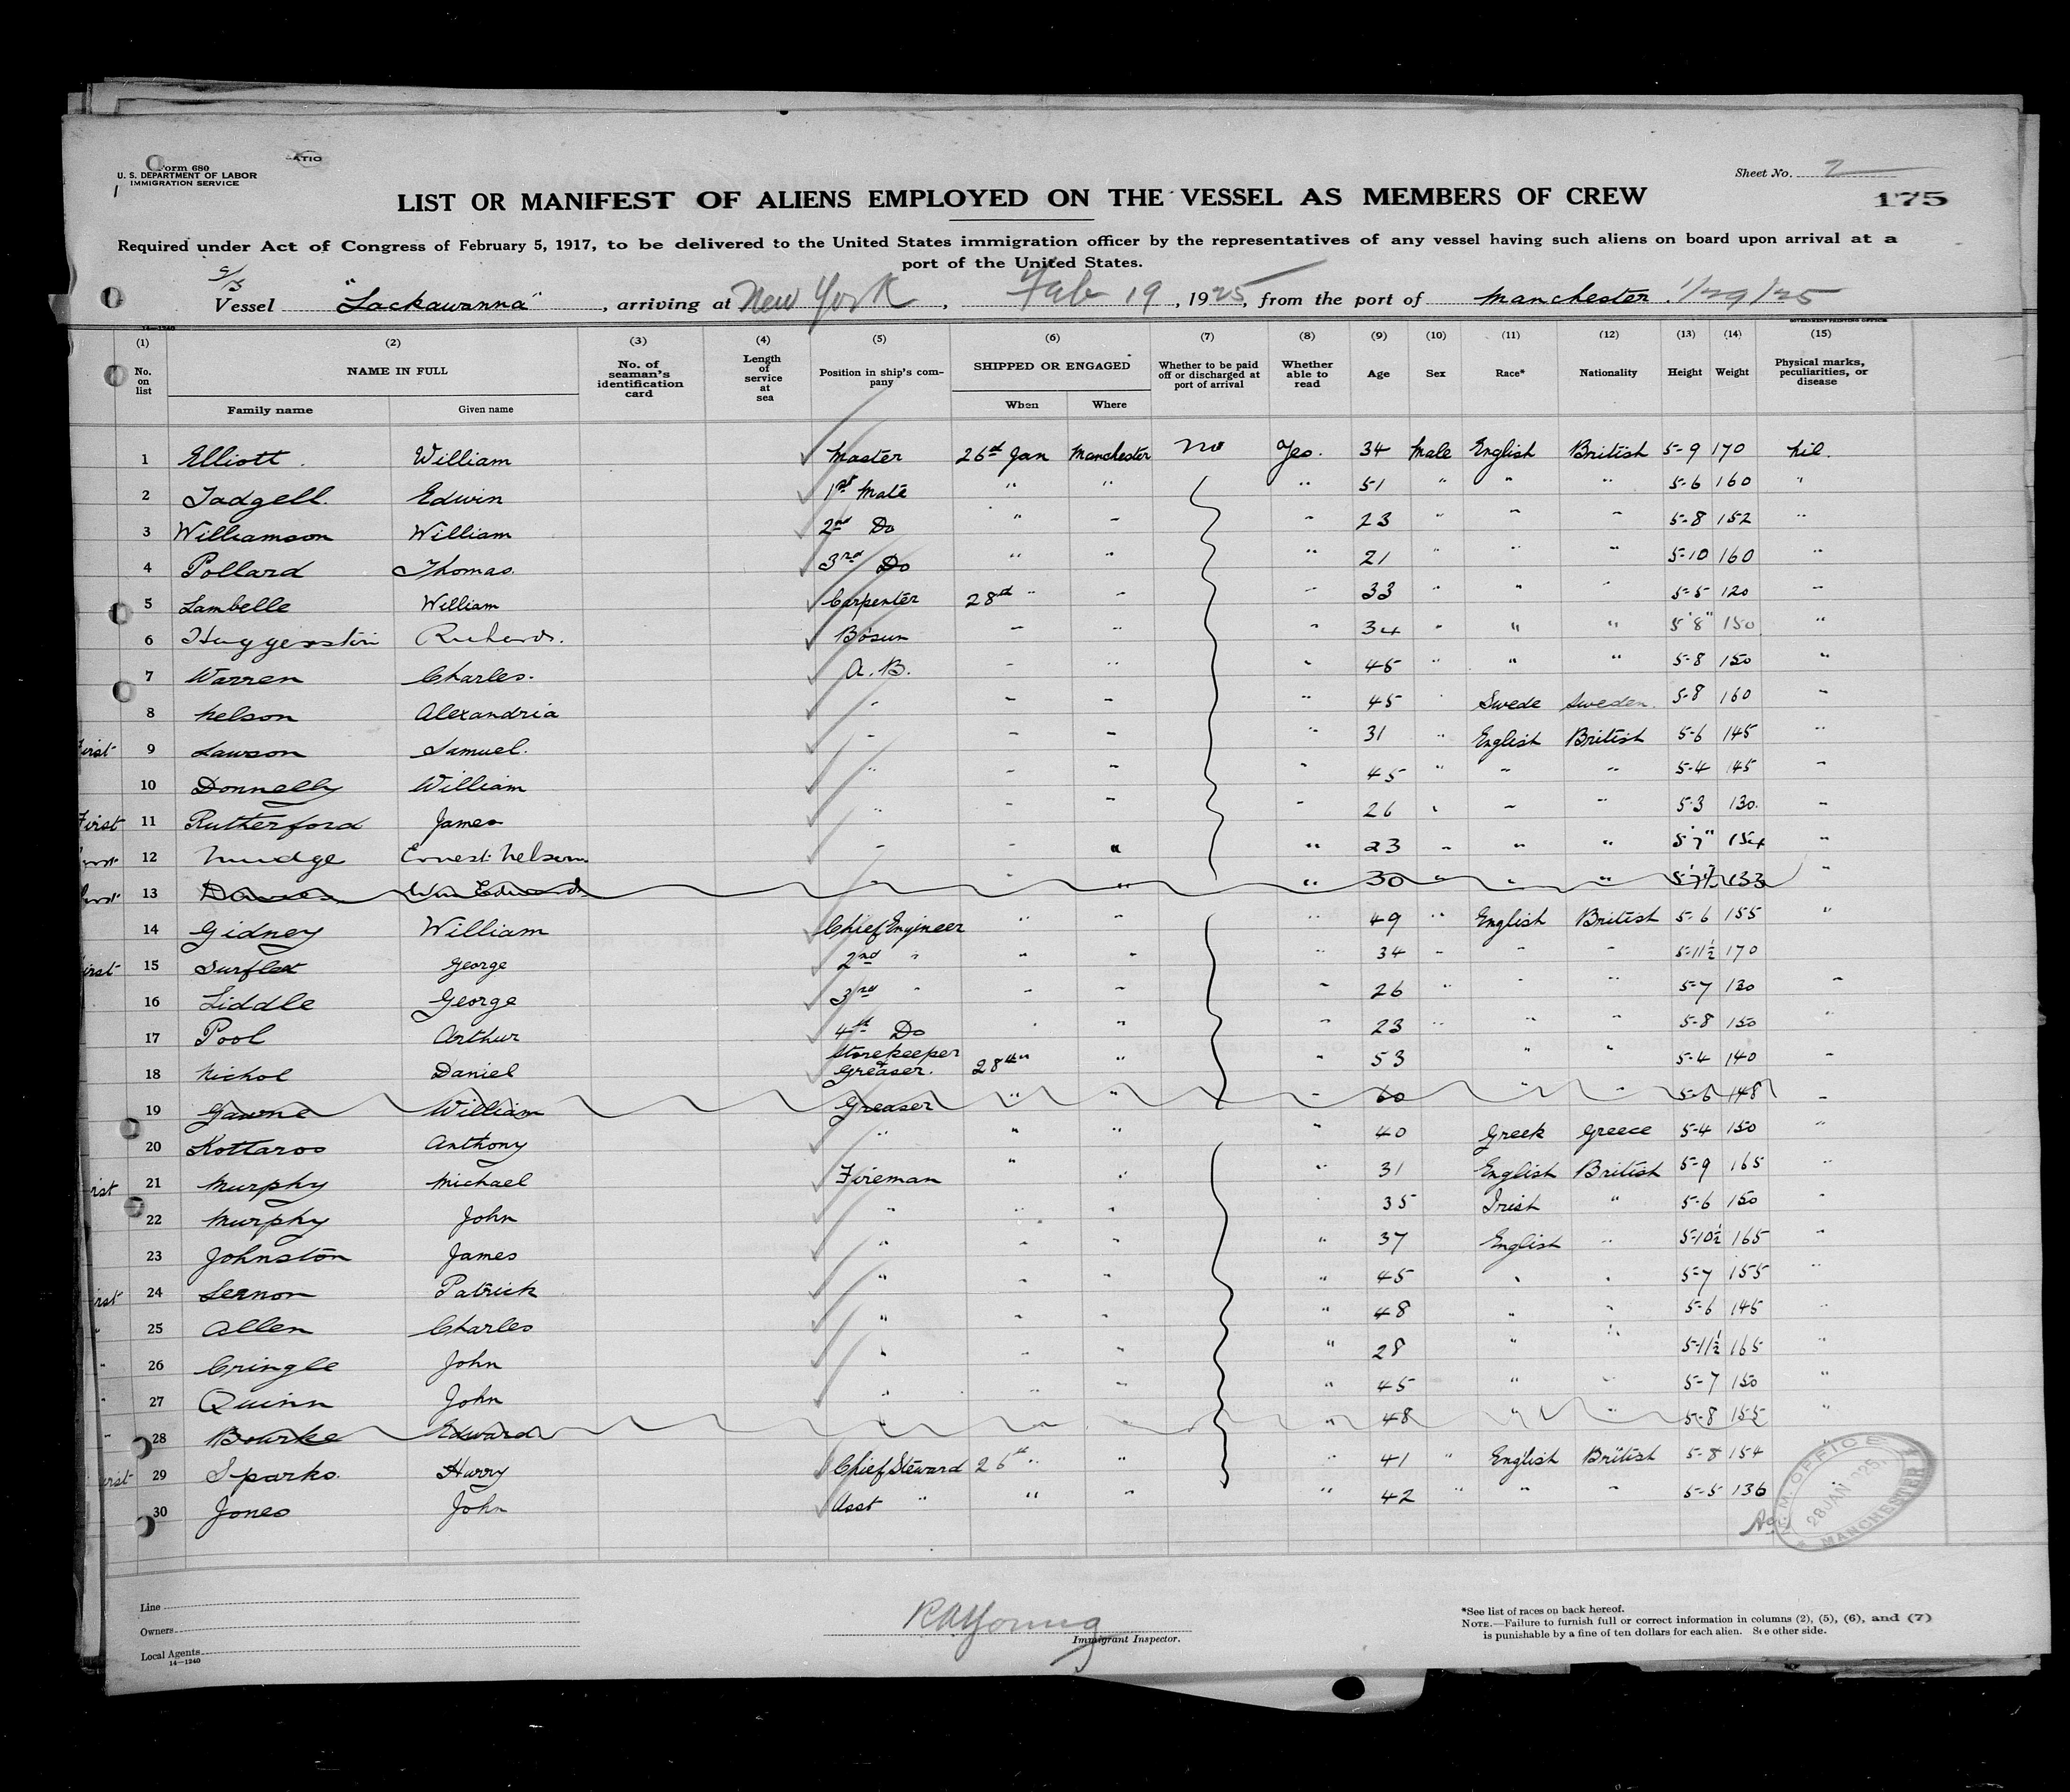 Form 680
U. S. DEPARTMENT OF LABOR
IMMIGRATION SERVICE
Sheet No. 2
175
LIST OR MANIFEST OF ALIENS EMPLOYED ON THE VESSEL AS MEMBERS OF CREW
Required under Act of Congress of February 5, 1917, to be delivered to the United States immigration officer by the representatives of any vessel having such aliens on board upon arrival at a
port of the United States.
S/S Vessel "Lackawanna", arriving at New York, Feb 19, 1925, from the port of Manchester. 1/29/25
14—1240
GOVERNMENT PRINTING OFFICE
(1) (2) (3) (4) (5) (6) (7) (8) (9) (10) (11) (12) (13) (14) (15)
No. on list NAME IN FULL No. of seaman's identification card Length of service at sea Position in ship's company SHIPPED OR ENGAGED Whether to be paid off or discharged at port of arrival Whether able to read Age Sex Race* Nationality Height Weight Physical marks, peculiarities, or disease
Family name Given name When Where
1 Elliott. William Master 26th Jan Manchester No Yes. 34 Male English British 5-9 170 Nil.
2 Tadgell. Edwin 1st Mate " " " 51 " " " 5-6 160 "
3 Williamson William 2nd Do " " " 23 " " " 5-8 152 "
4 Pollard Thomas. 3rd Do " " " 21 " " " 5-10 160 "
5 Lambelle William Carpenter 28th " " " 33 " " " 5-5 120 "
6 Richard. Bosun " " " 34 " " " 5'8" 150 "
7 Warren Charles. A.B. " " " 45 " " " 5-8 150 "
8 Nelson Alexandria " " " " 45 " Swede Sweden. 5-8 160 "
First 9 Lawson Samuel. " " " " 31 " English British 5-6 145 "
10 Donnelly William " " " " 45 " " " 5-4 145 "
First 11 Rutherford James " " " " 26 " " " 5-3 130. "
First 12 Mudge Ernest Nelson " " " " 23 " " " 5'7" 154 "
First 13 Davies Wm Edward " " " " 30 " " " 133 "
14 Gidney William Chief Engineer " " " 49 " English British 5-6 155 "
First 15 Surflex George 2nd " " " " 34 " " " 5-11½ 170
16 Liddle George 3rd " " " " 26 " " " 5-7 130 "
17 Pool Arthur 4th Do " " " 23 " " " 5-8 150 "
18 Nichol Daniel Storekeeper & Greaser. 28th " " " 53 " " 5-4 140 "
19 Gawne William Greaser " " " 60 " " 5-6 148 "
20 Kottaros Anthony " " " " 40 Greek Greece 5-4 150 "
First 21 Murphy Michael Fireman " " " 31 English British 5-9 165 "
22 Murphy John " " " " 35 Irish " 5-6 150 "
23 Johnston James " " " " 37 English " 5-10½ 165 "
First 24 Lennon Patrick " " " " 45 " " 5-7 155 "
" 25 Allen Charles " " " " 48 " " 5-6 145 "
" 26 Cringle John " " " " 28 " " 5-11½ 165 "
" 27 Quinn John " " " " 45 " " 5-7 150 "
" 28 Bourke Edward " " " " 48 " " 5-8 155 "
First 29 Sparks. Harry Chief Steward 26th " " " 41 " English British 5-8 154 "
30 Jones John Asst " " " " 42 " " " 5-5 136 "
M.M. OFFICE
28 JAN 1925
MANCHESTER
Line
Owners
Local Agents
14—1240
R A Young
Immigrant Inspector.
*See list of races on back hereof.
NOTE.—Failure to furnish full or correct information in columns (2), (5), (6), and (7)
is punishable by a fine of ten dollars for each alien. See other side.